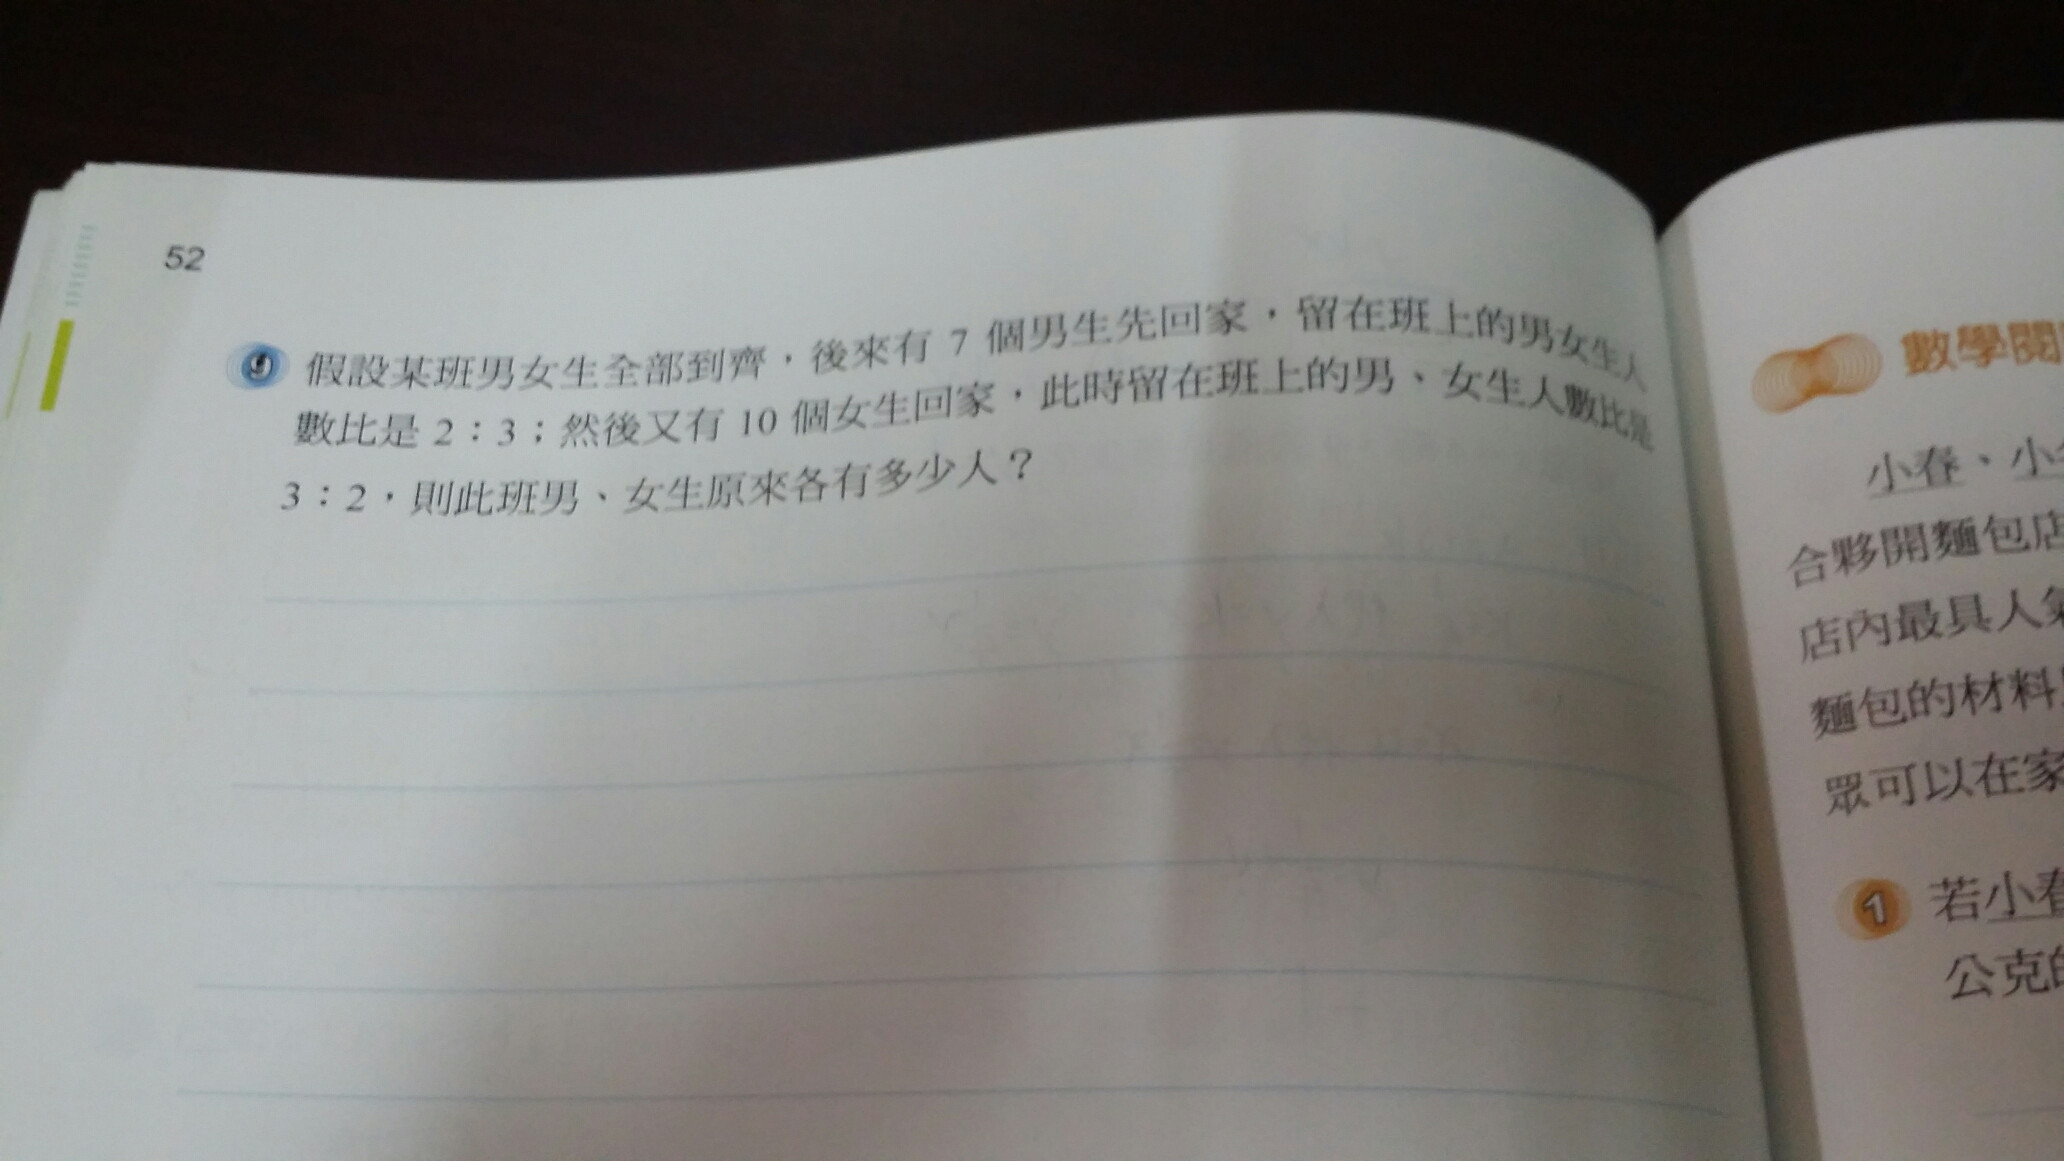 52
9 假設某班男女生全部到齊，後來有 7 個男生先回家，留在班上的男女生人
數比是 2：3；然後又有 10 個女生回家，此時留在班上的男、女生人數比是
3：2，則此班男、女生原來各有多少人？
數學閱
小春、小
合夥開麵包店
店內最具人氣
麵包的材料
眾可以在家
1 若小春
公克的